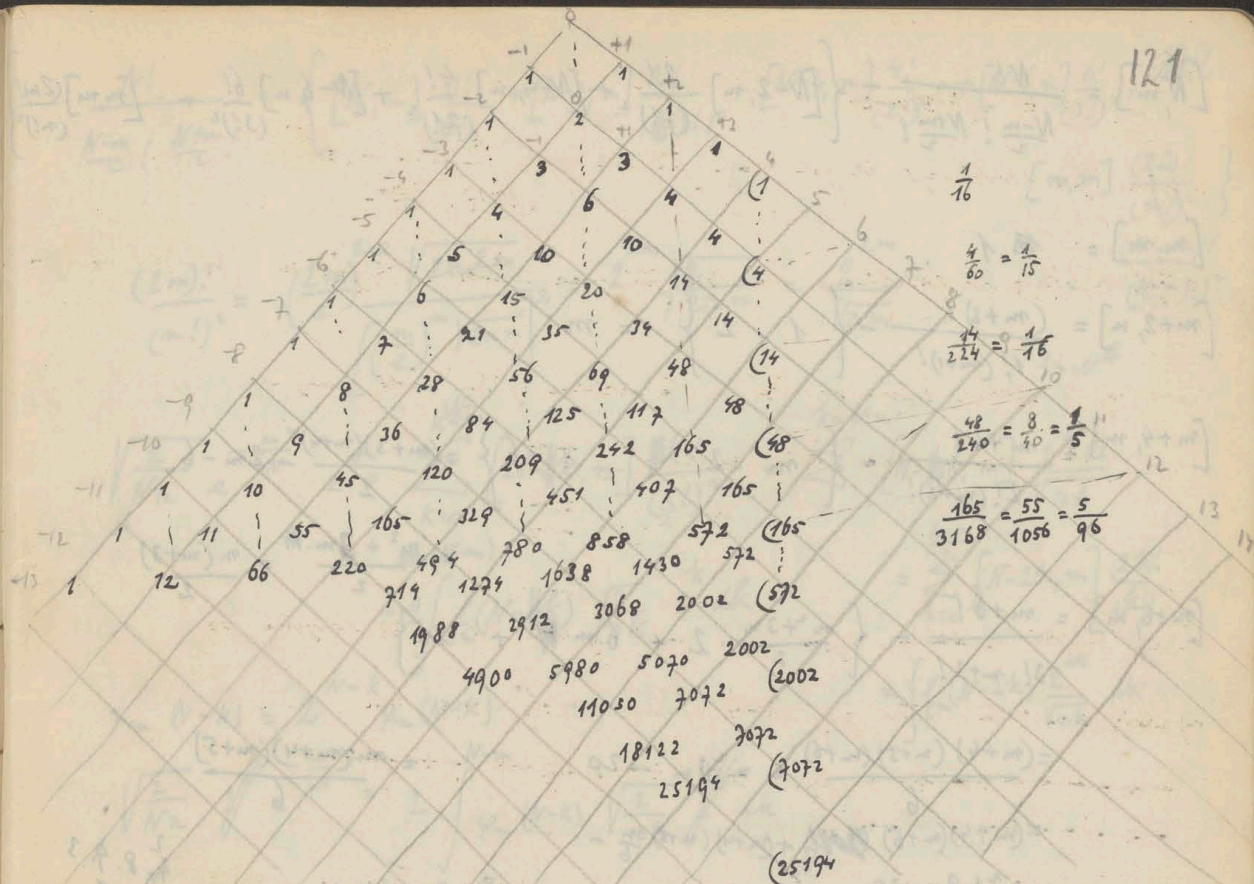 121
0
-1 +1
1 1
-2 0 +2
1 2 1
-3 -1 +1 +3
1 3 3 1
-4 4
1 4 6 4 (1
-5 5
1 5 10 10 4
-6 6
1 6 15 20 14 (4
-7 7
1 7 21 35 34 14
-8 8
1 8 28 56 69 48 (14
-9
1 9 36 84 125 117 48
-10 10
1 10 45 120 209 242 165 (48
-11 11
1 11 55 165 329 451 407 165
-12 12
1 12 66 220 494 780 858 572 (165
-13 13
714 1274 1638 1430 572
14
1988 2912 3068 2002 (572
4900 5980 5070 2002
11050 7072 (2002
18122 7072
25194 (7072
(25194
1/16
4/60 = 1/15
14/224 = 1/16
48/240 = 8/40 = 1/5
165/3168 = 55/1056 = 5/96